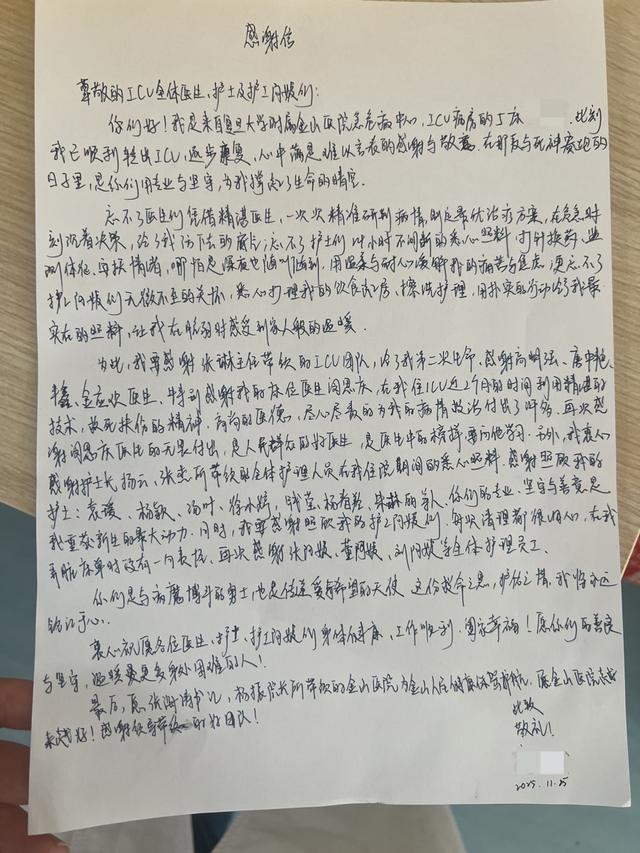 感谢信
尊敬的ICU全体医生、护士及护工阿姨们:
你们好!我是来自复旦大学附属金山医院急危病中心,ICU病房的5床 此刻
我已顺利转出ICU,逐步康复,心中满是难以言表的感谢与敬意。在那段与死神赛跑的
日子里,是你们用专业与坚守,为我撑起了生命的晴空。
忘不了医生们凭借精湛医生,一次次精准研判病情,制定最优治疗方案,在危急时
刻沉着决策,给了我活下去的 忘不了护士们24小时不间断的悉心照料,打针换药、监
测体征、安抚情绪,哪怕是深夜也随叫随到,用温柔与耐心缓解我的痛苦与焦虑,更忘不了
护工阿姨们无微不至的关怀,悉心打理我的饮食起居,擦洗护理,用朴实的行动给了我最
实在的照料,让我在脆弱时感受到家人般的温暖。
为此,我要感谢张琳主任带领的ICU团队,给了我第二次生命,感谢
金 医生、特别感谢我的床位医生周思庆,在我住ICU近2个月的时间利用精湛的
技术,救死扶伤的精神,高尚的医德,尽心尽责的为我的病情救治付出了 再次感
谢周思庆医生的无私付出,是人民群众的好医生,是医生中的榜样要向他学习。另外,我衷心
感谢护士长杨云、张 所带领的全体护理人员在我住院期间的悉心照料。感谢照顾我的
护士:袁媛、杨颖、汤叶、徐小婧、 等人,你们的专业、坚守与善意是
我重获新生的最大动力。同时,我要感谢照顾我的护工阿姨们,每次清理都很细心,在我
弄脏床单时没有一句责怪。再次感谢张阿姨、董阿姨、刘阿姨等全体护理员工。
你们是与病魔搏斗的勇士,也是传递爱与希望的天使,这份救命之恩,护佑之情,我将永远
铭记于心。
衷心祝愿各位医生、护士、护工阿姨们身体健康、工作顺利、阖家幸福!愿你们的善良
与坚守,温暖最更多身处困难的人!
最后,愿张 书记、杨 院长所带领的金山医院为金山人民健康保驾护航。愿金山医院
来越好!感谢领导带 的好团队!
此致
敬礼!
2025.11.25